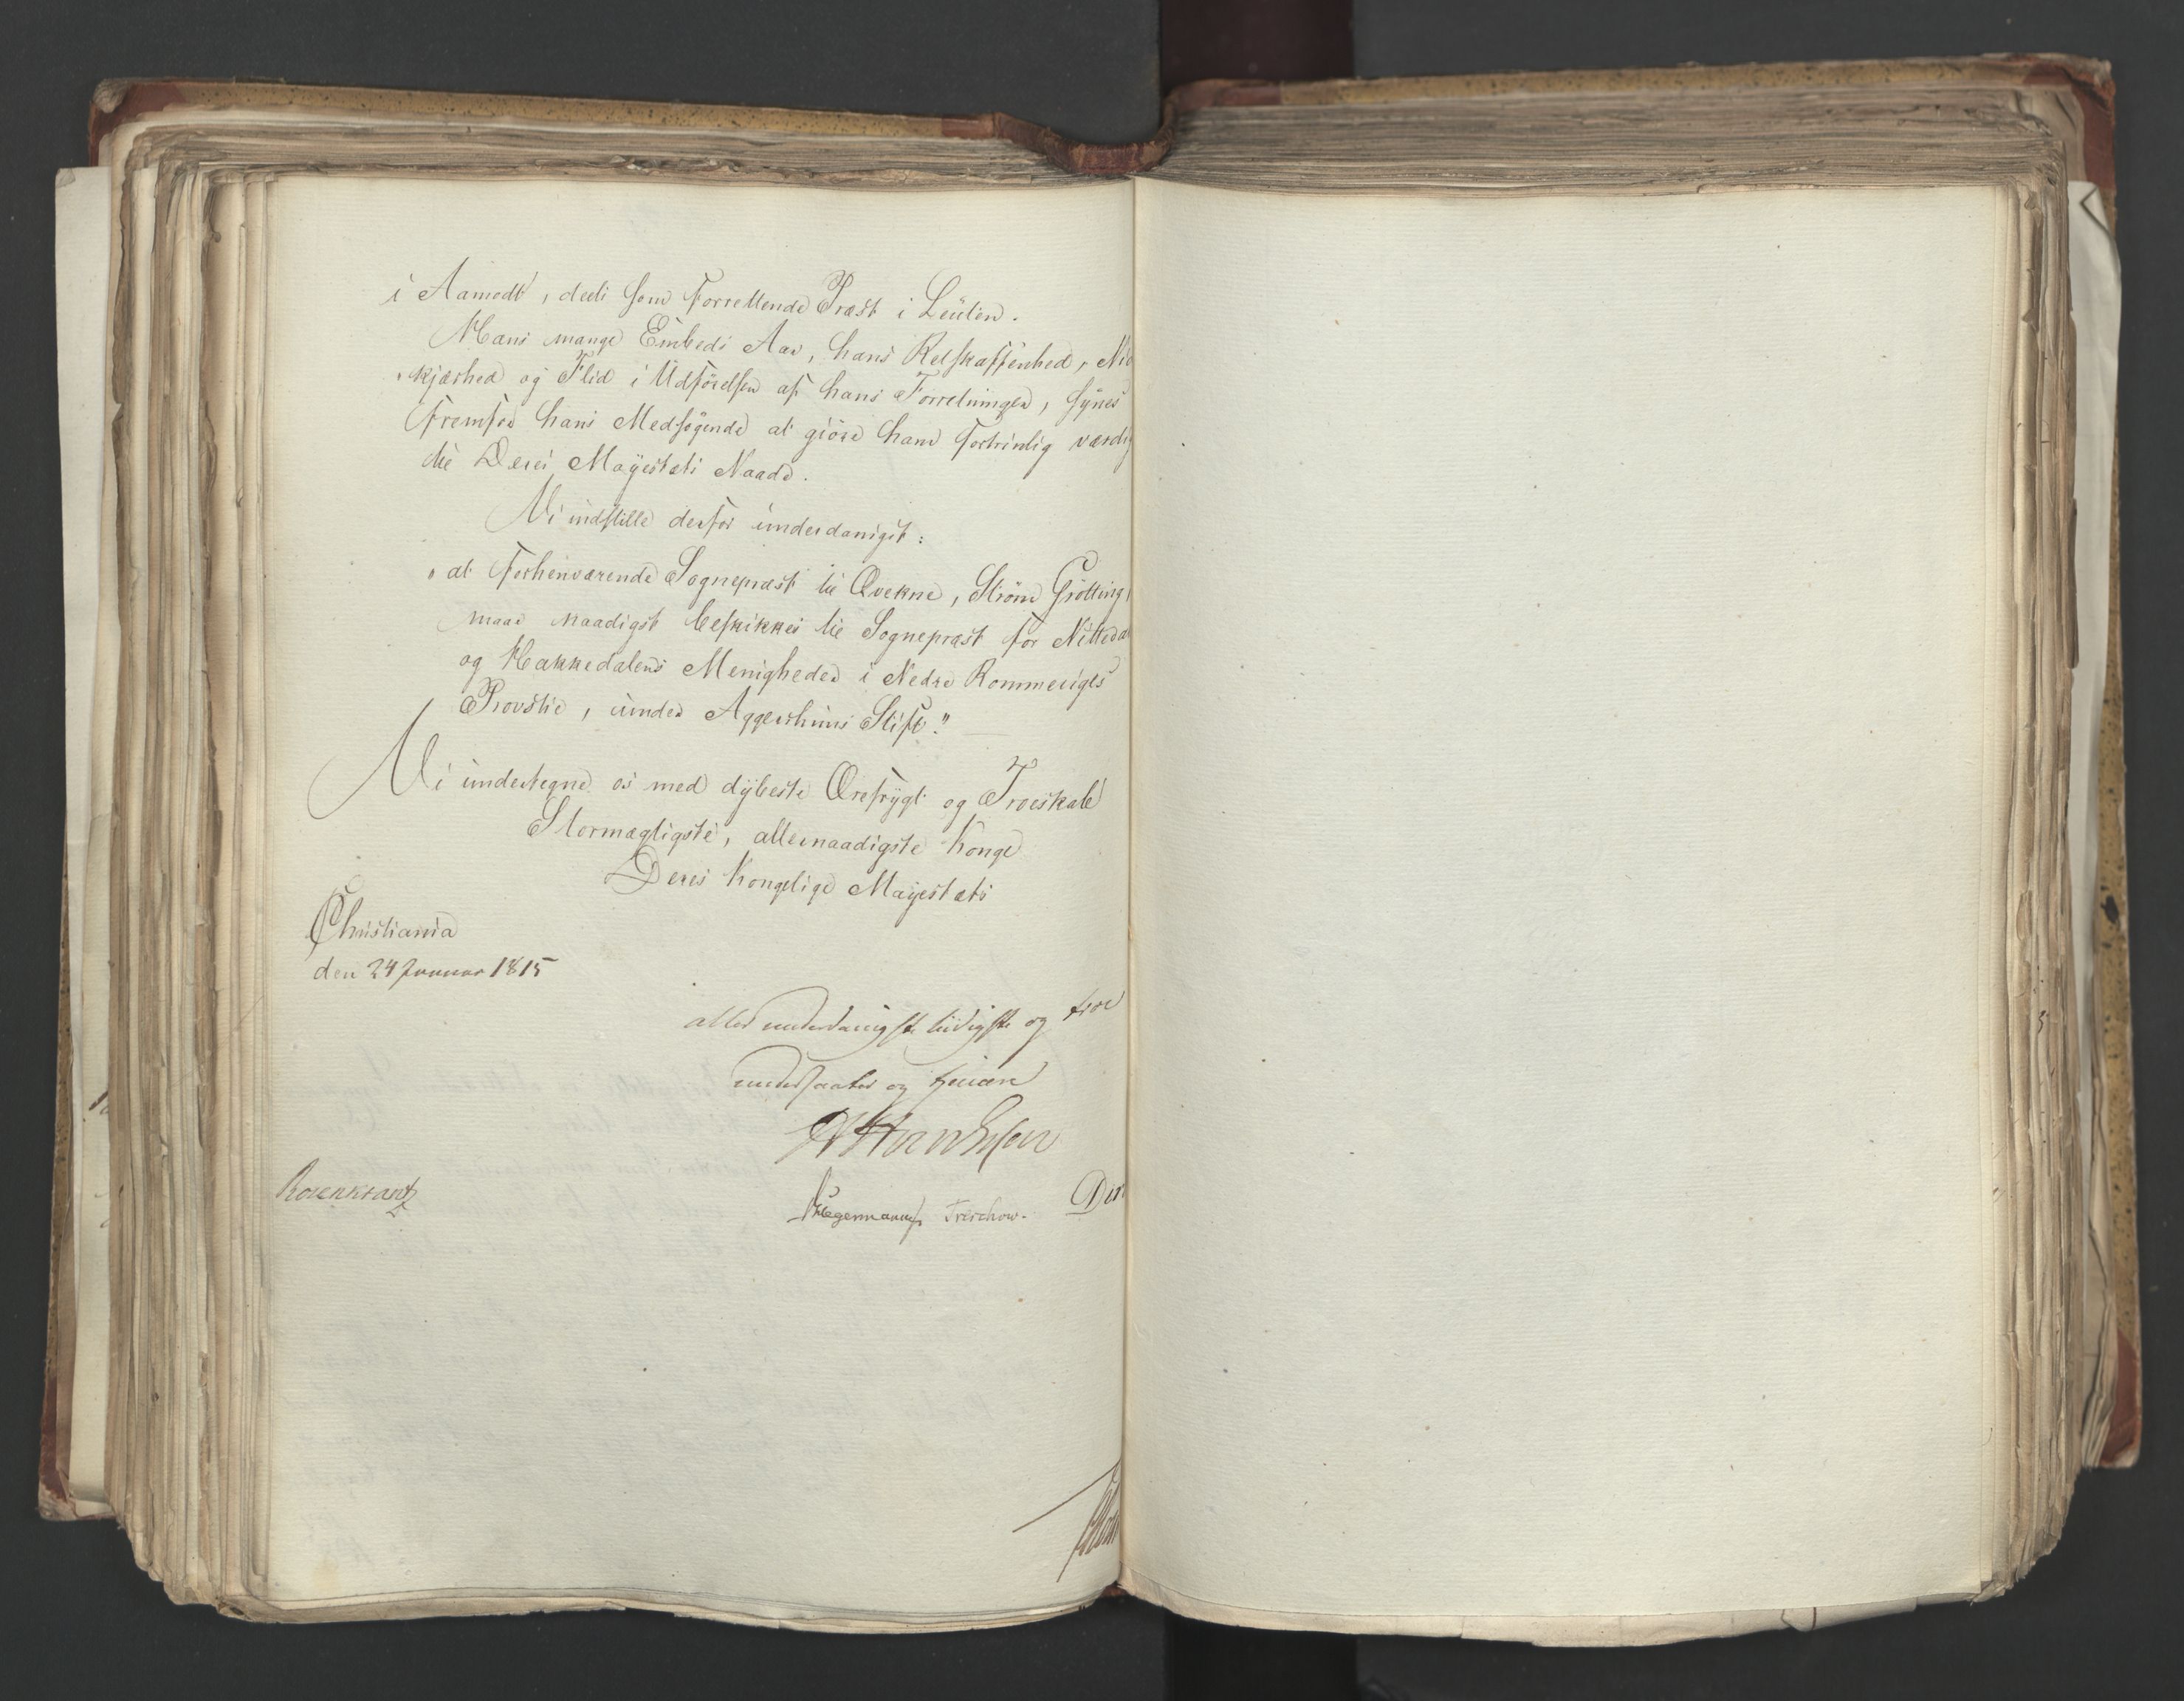 i Aamodt, deels som forrettende Præst i Leuten.
Hans mange Embeds Aar, hans Retskaffenhed, Nid
kjærhed og Flid i Udførelsen af hans Forretninger, synes
fremfor hans Medsøgende at giøre ham fortrinlig værdig
til Deres Mayestæts Naade.
Vi indstille derfor underdanigst:
"at forhenværende Sognepræst til Qvekne, Strøm Grøtting,
maae naadigst beskikkes til Sognepræst for Nittedal
og Hakkedalens Menigheder i Nedre Rommeriges
Provstie, under Aggershuus Stift."
Vi undertegne os med dybeste Ærefrygt og Troeskab
Stormægtigste, allernaadigste Konge
Deres Kongelige Mayestæts
Christiania
den 24 Januar 1815
allerunderdanigste lydigste og troe
undersaatter og tienere
Rosenkrantz
Hegermann Treschow.